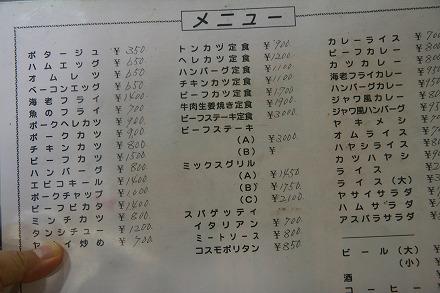 メニュー
ポタージュ ¥350
ハムエッグ ¥650
オムレツ ¥650
ベーコンエッグ ¥650
海老フライ ¥1400
魚のフライ ¥700
ポークヘレカツ ¥900
ポークカツ ¥900
チキンカツ ¥800
ビーフカツ ¥1500
ハンバーグ ¥800
エビコキール ¥1400
ポークチャップ ¥1000
ビーフピカタ ¥1400
ミンチカツ ¥800
タンシチュー ¥1200
ヤサイ炒め ¥700
トンカツ定食 ¥900
ヘレカツ定食 ¥1200
ハンバーグ定食 ¥1100
チキンカツ定食 ¥1100
ビーフカツ定食 ¥1700
牛肉生姜焼き定食 ¥1900
ビーフステーキ定食 ¥3000
ビーフステーキ
(A) ¥3000
(B) ¥
ミックスグリル
(A) ¥1450
(B) ¥1750
(C) ¥2100
スパゲッティ
イタリアン ¥700
ミートソース ¥800
コスモポリタン ¥850
カレーライス ¥
ビーフカレー ¥
カツカレー ¥
海老フライカレー ¥
ハンバーグカレー ¥
ジャワ風カレー ¥
ジャワ風ハンバーグ ¥
ヤキメシ ¥
オムライス ¥
ハヤシライス ¥
カツハヤシ ¥
ライス ¥
ライス(大) ¥
ヤサイサラダ ¥
ハムサラダ ¥
アスパラサラダ ¥
ビール(大) ¥
(小) ¥
酒
コーヒー